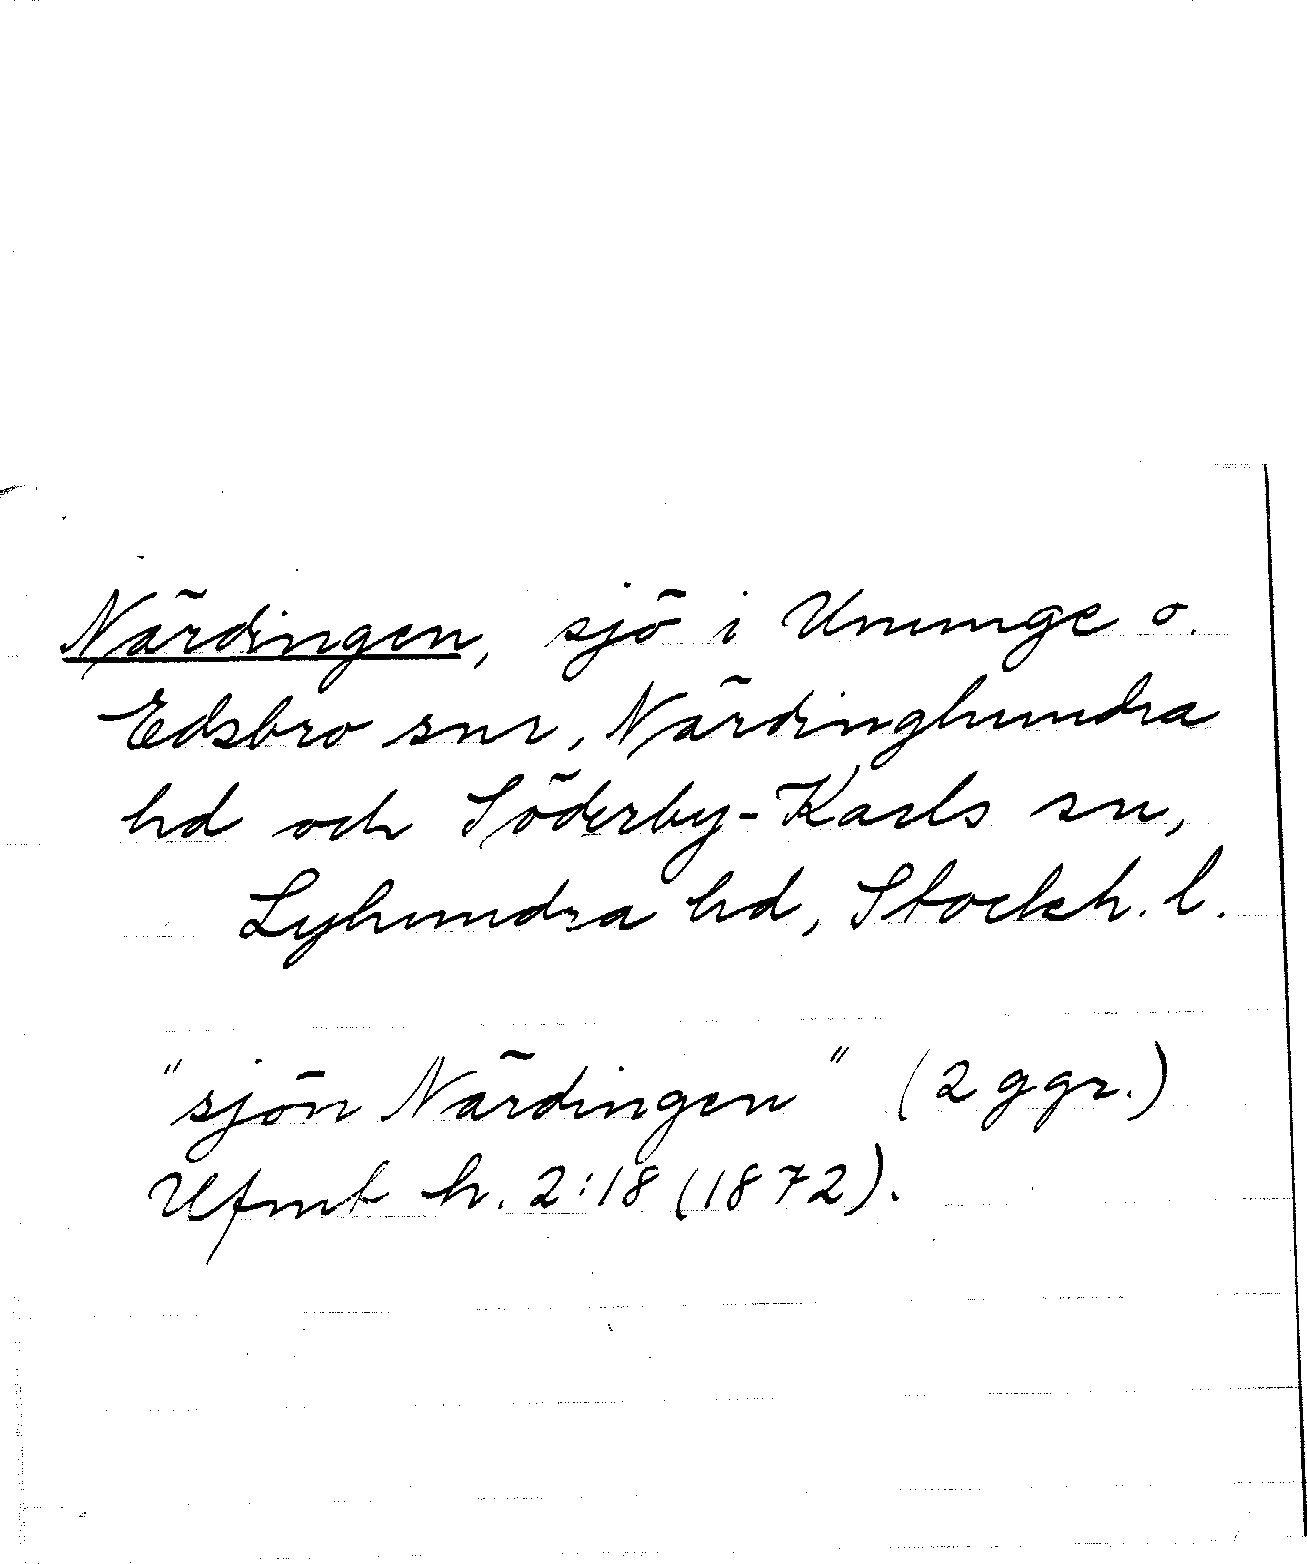 Närdingen, sjö i Ununge o.
Edsbro snr, Närdinghundra
hd och Söderby-Karls sn,
Lyhundra hd, Stockh. l.
"sjön Närdingen" (2 ggr.)
Ufmt h. 2:18 (1872).